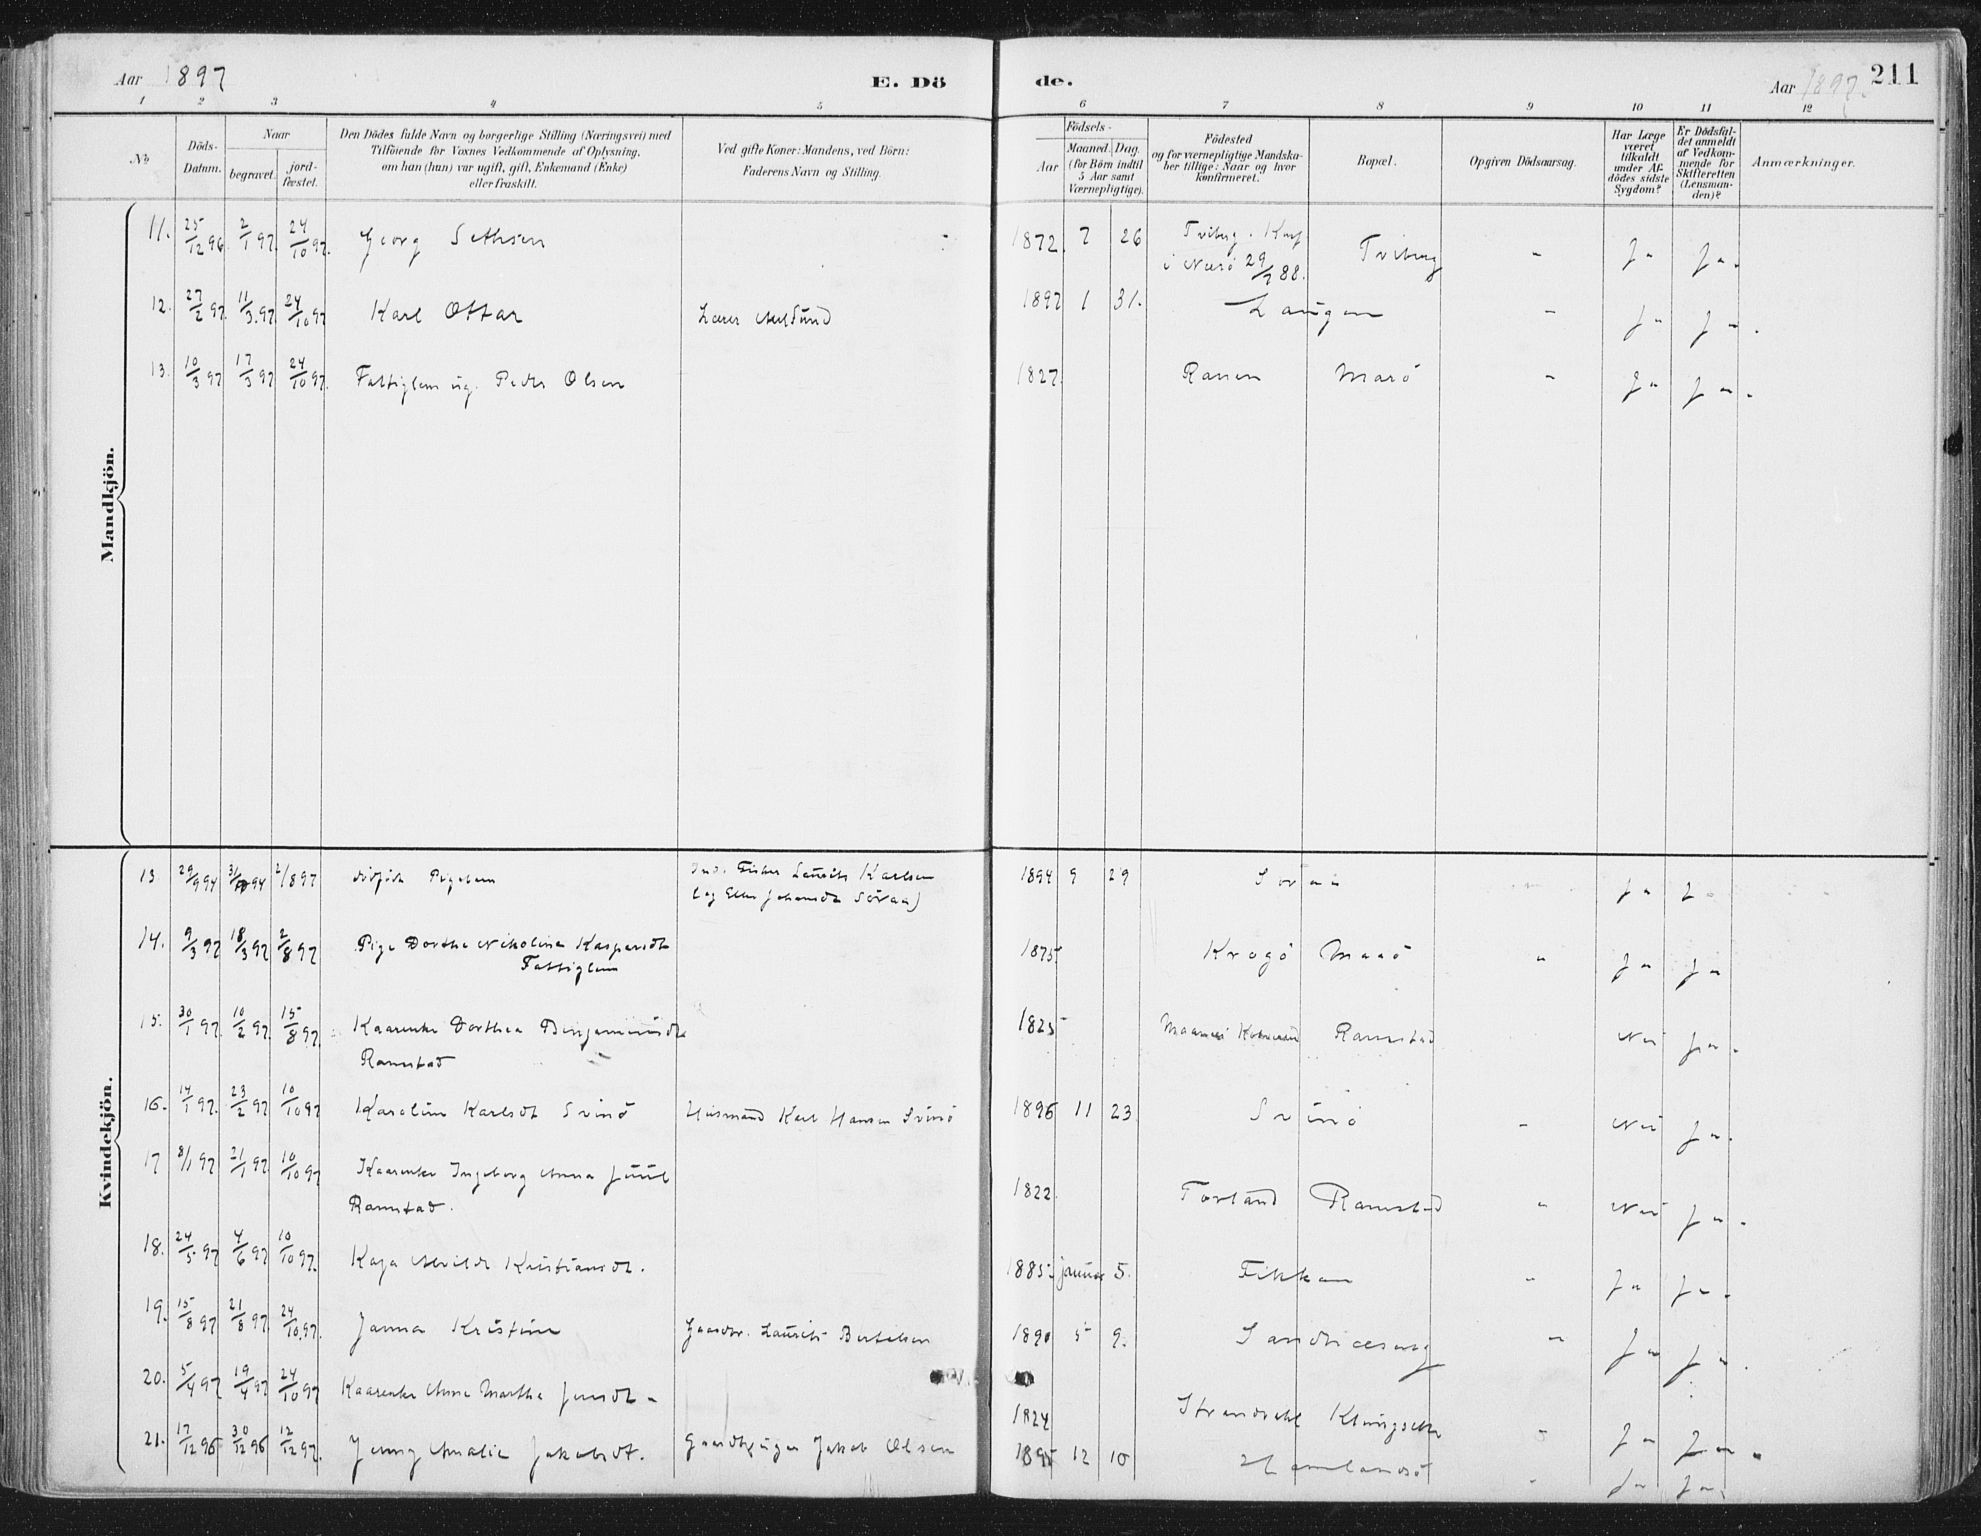 Aar 1897 E. Dö de. Aar 1897. 211
1 2 3 4 5 6 7 8 9 10 11 12
No
Döds-Datum.
Naar
begravet.
jord-fæstet.
Den Dödes fulde Navn og borgerlige Stilling (Næringsvei) med
Tilföiende for Voxnes Vedkommende af Oplysning,
om han (hun) var ugift, gift, Enkemand (Enke)
eller fraskilt.
Ved gifte Koner: Mandens, ved Börn:
Faderens Navn og Stilling.
Födsels-
Aar
Maaned. Dag.
(for Börn indtil
5 Aar samt
Værnepligtige).
Födested
og for værnepligtige Mandska-
ber tillige: Naar og hvor
konfirmeret.
Bopæl.
Opgiven Dödsaarsag.
Har Læge
været
tilkaldt
under Af-
dödes sidste
Sygdom?
Er Dödsfal-
det anmeldt
af Vedkom-
mende for
Skifteretten
(Lensman-
den)?
Anmærkninger.
Mandkjön.
11. 25/12 96. 2/1 97. 24/10 97. Georg Sethsen 1872. 7 26 Tviberg. Konf. Tviberg " Ja Ja.
i Nærö 29/7 88.
12. 27/2 97. 11/3. 97. 24/10 97 Karl Ottar Lærer 1897 1 31. Laugen " Ja Ja.
13. 10/3 97 17/3 97 24/10 97. Fattiglem ug. Peder Olsen 1827. Ranen Marö " Ja Ja.
Kvindekjön.
13 29/9 94 94 2/8 97 dödfödt Pigebarn Ind. Fisker Laurits Karlsen 1894 9 29 Söraa Ja Ja
(og Ellen Johansdt Söraa)
14. 9/3 97 18/3 97 2/8 97 Pige Dorthe Nikoline Kaspersdt 1875. Krogö Maaö " Ja Ja
Fattiglem
15. 30/1 97. 10/2 97. 15/8 97. Kaarenke Dorthea Benjaminsdt 1825 Ramstad Nei Ja.
Ramstad
16. 14/1 97. 23/2 97 10/10 97 Karoline Karlsdt Svinö Husmand Karl Hansen Svinö 1896 11 23 Svinö " Nei Ja.
17 8/1 97 21/1 97. 10/10 97. Kaarenke Ingeborg Anna Juul 1822. Torland Ramstad " Nei Ja.
Ramstad.
18. 24/5 97 4/6 97 10/10 97. Kaja Alvilde Kristiansdt. 1885. januar 5. Fikkan " Ja Ja.
19. 15/8 97 21/8 97. 24/10. 97. Janna Kristine Gaardbr. Laurits Bertelsen 1890 5 9. " Ja Ja.
20. 5/4 97 19/4 97 24/10 97 Kaarenke Anne Martha Jensdt. 1824 Ja Ja.
21. 17/12 96 30/12 96 12/12 97. Jenny Amalie Jakobsdt. Jakob Olsen 1895 12 10 Hamlandsö " Ja Ja.